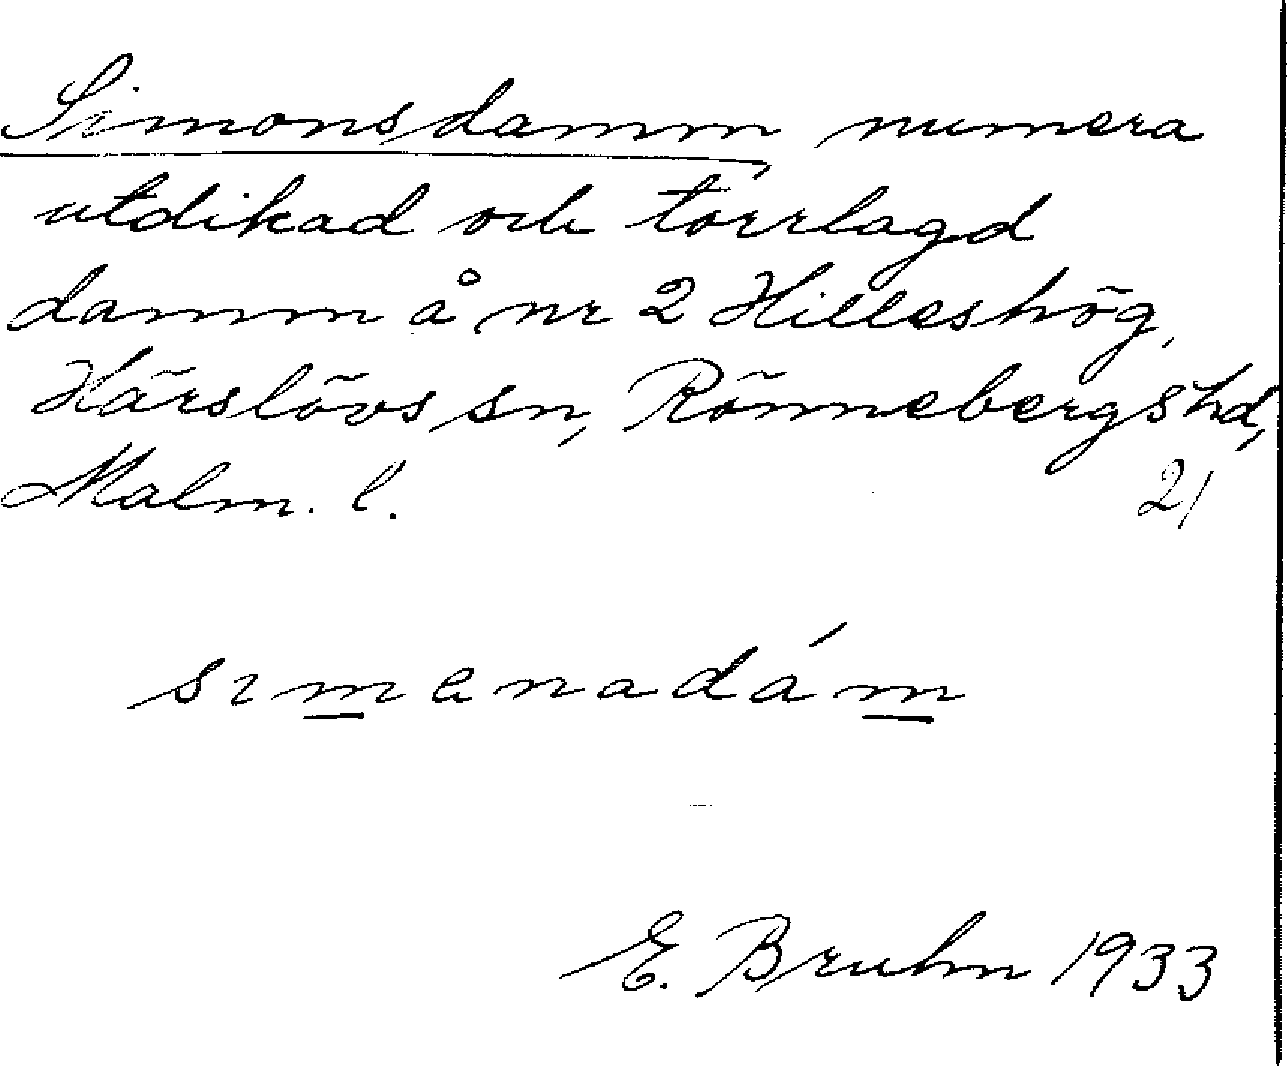 Simonsdamm, numera
utdikad och torrlagd
damm å nr 2 Hilleshög,
Härslövs sn, Rönnebergs hd,
Malm. l. 21
simanadám
E. Bruhn 1933